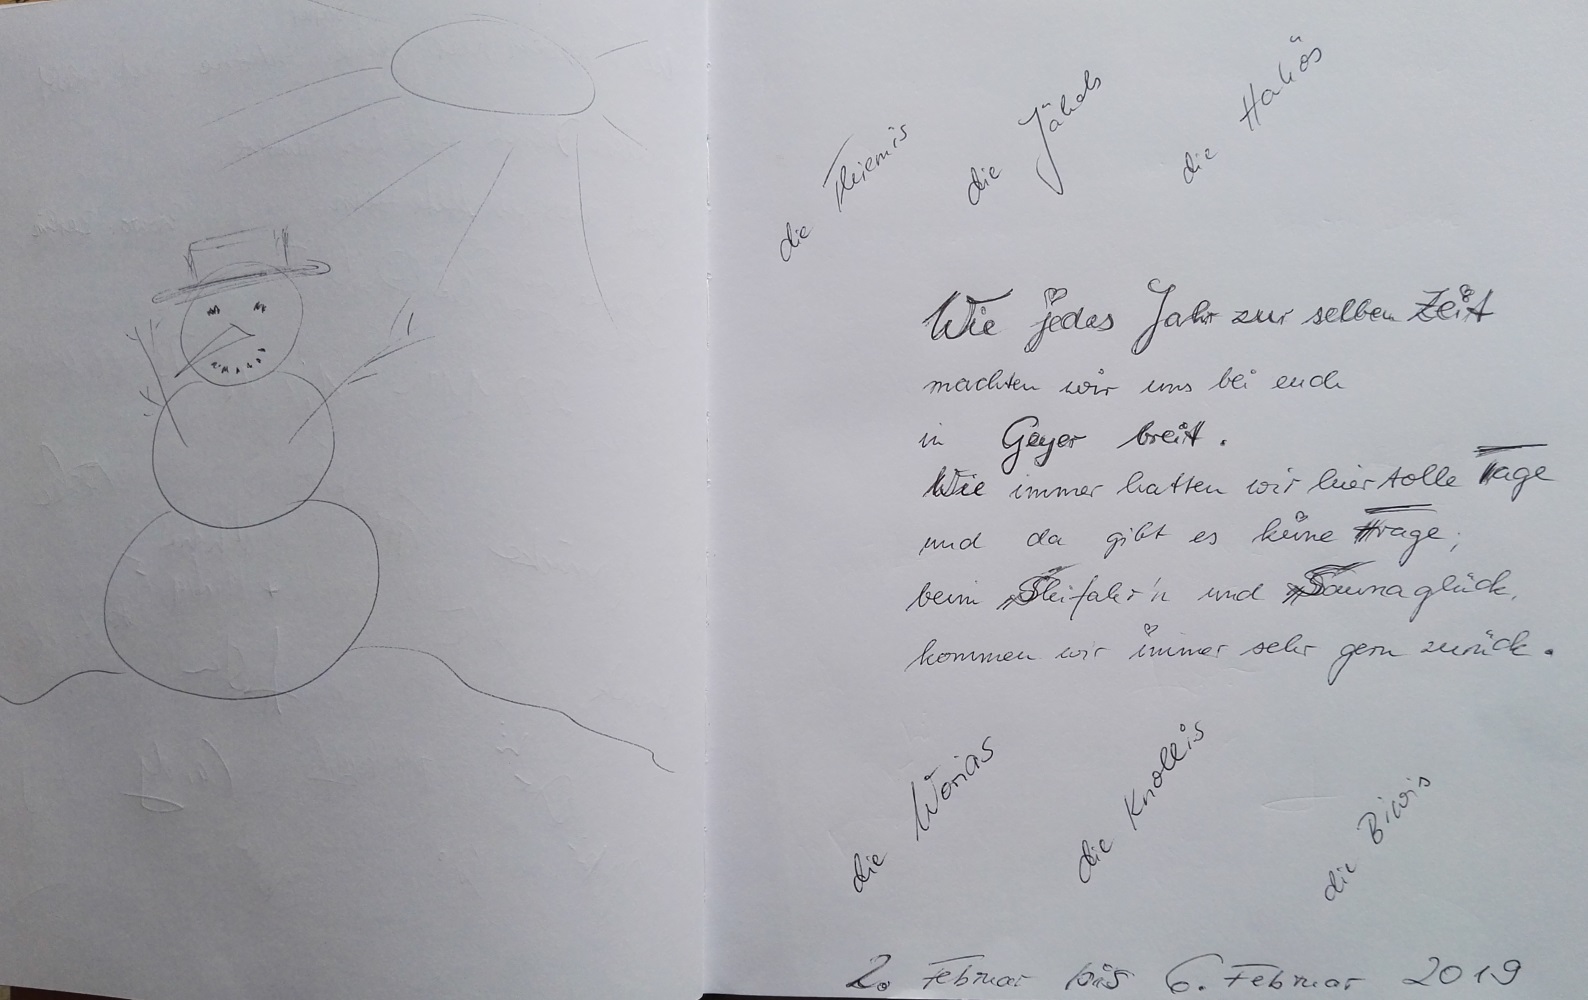 die Thiemis
die Jähds
die Haliös
Wie jedes Jahr zur selben Zeit
machten wir uns bei euch
in Geyer breit.
Wie immer hatten wir hier tolle Tage
und da gibt es keine Frage,
beim Skifahr'n und Saunaglück,
kommen wir immer sehr gern zurück.
die Wonias
die Knollis
die Biwis
2. Februar bis 6. Februar 2019